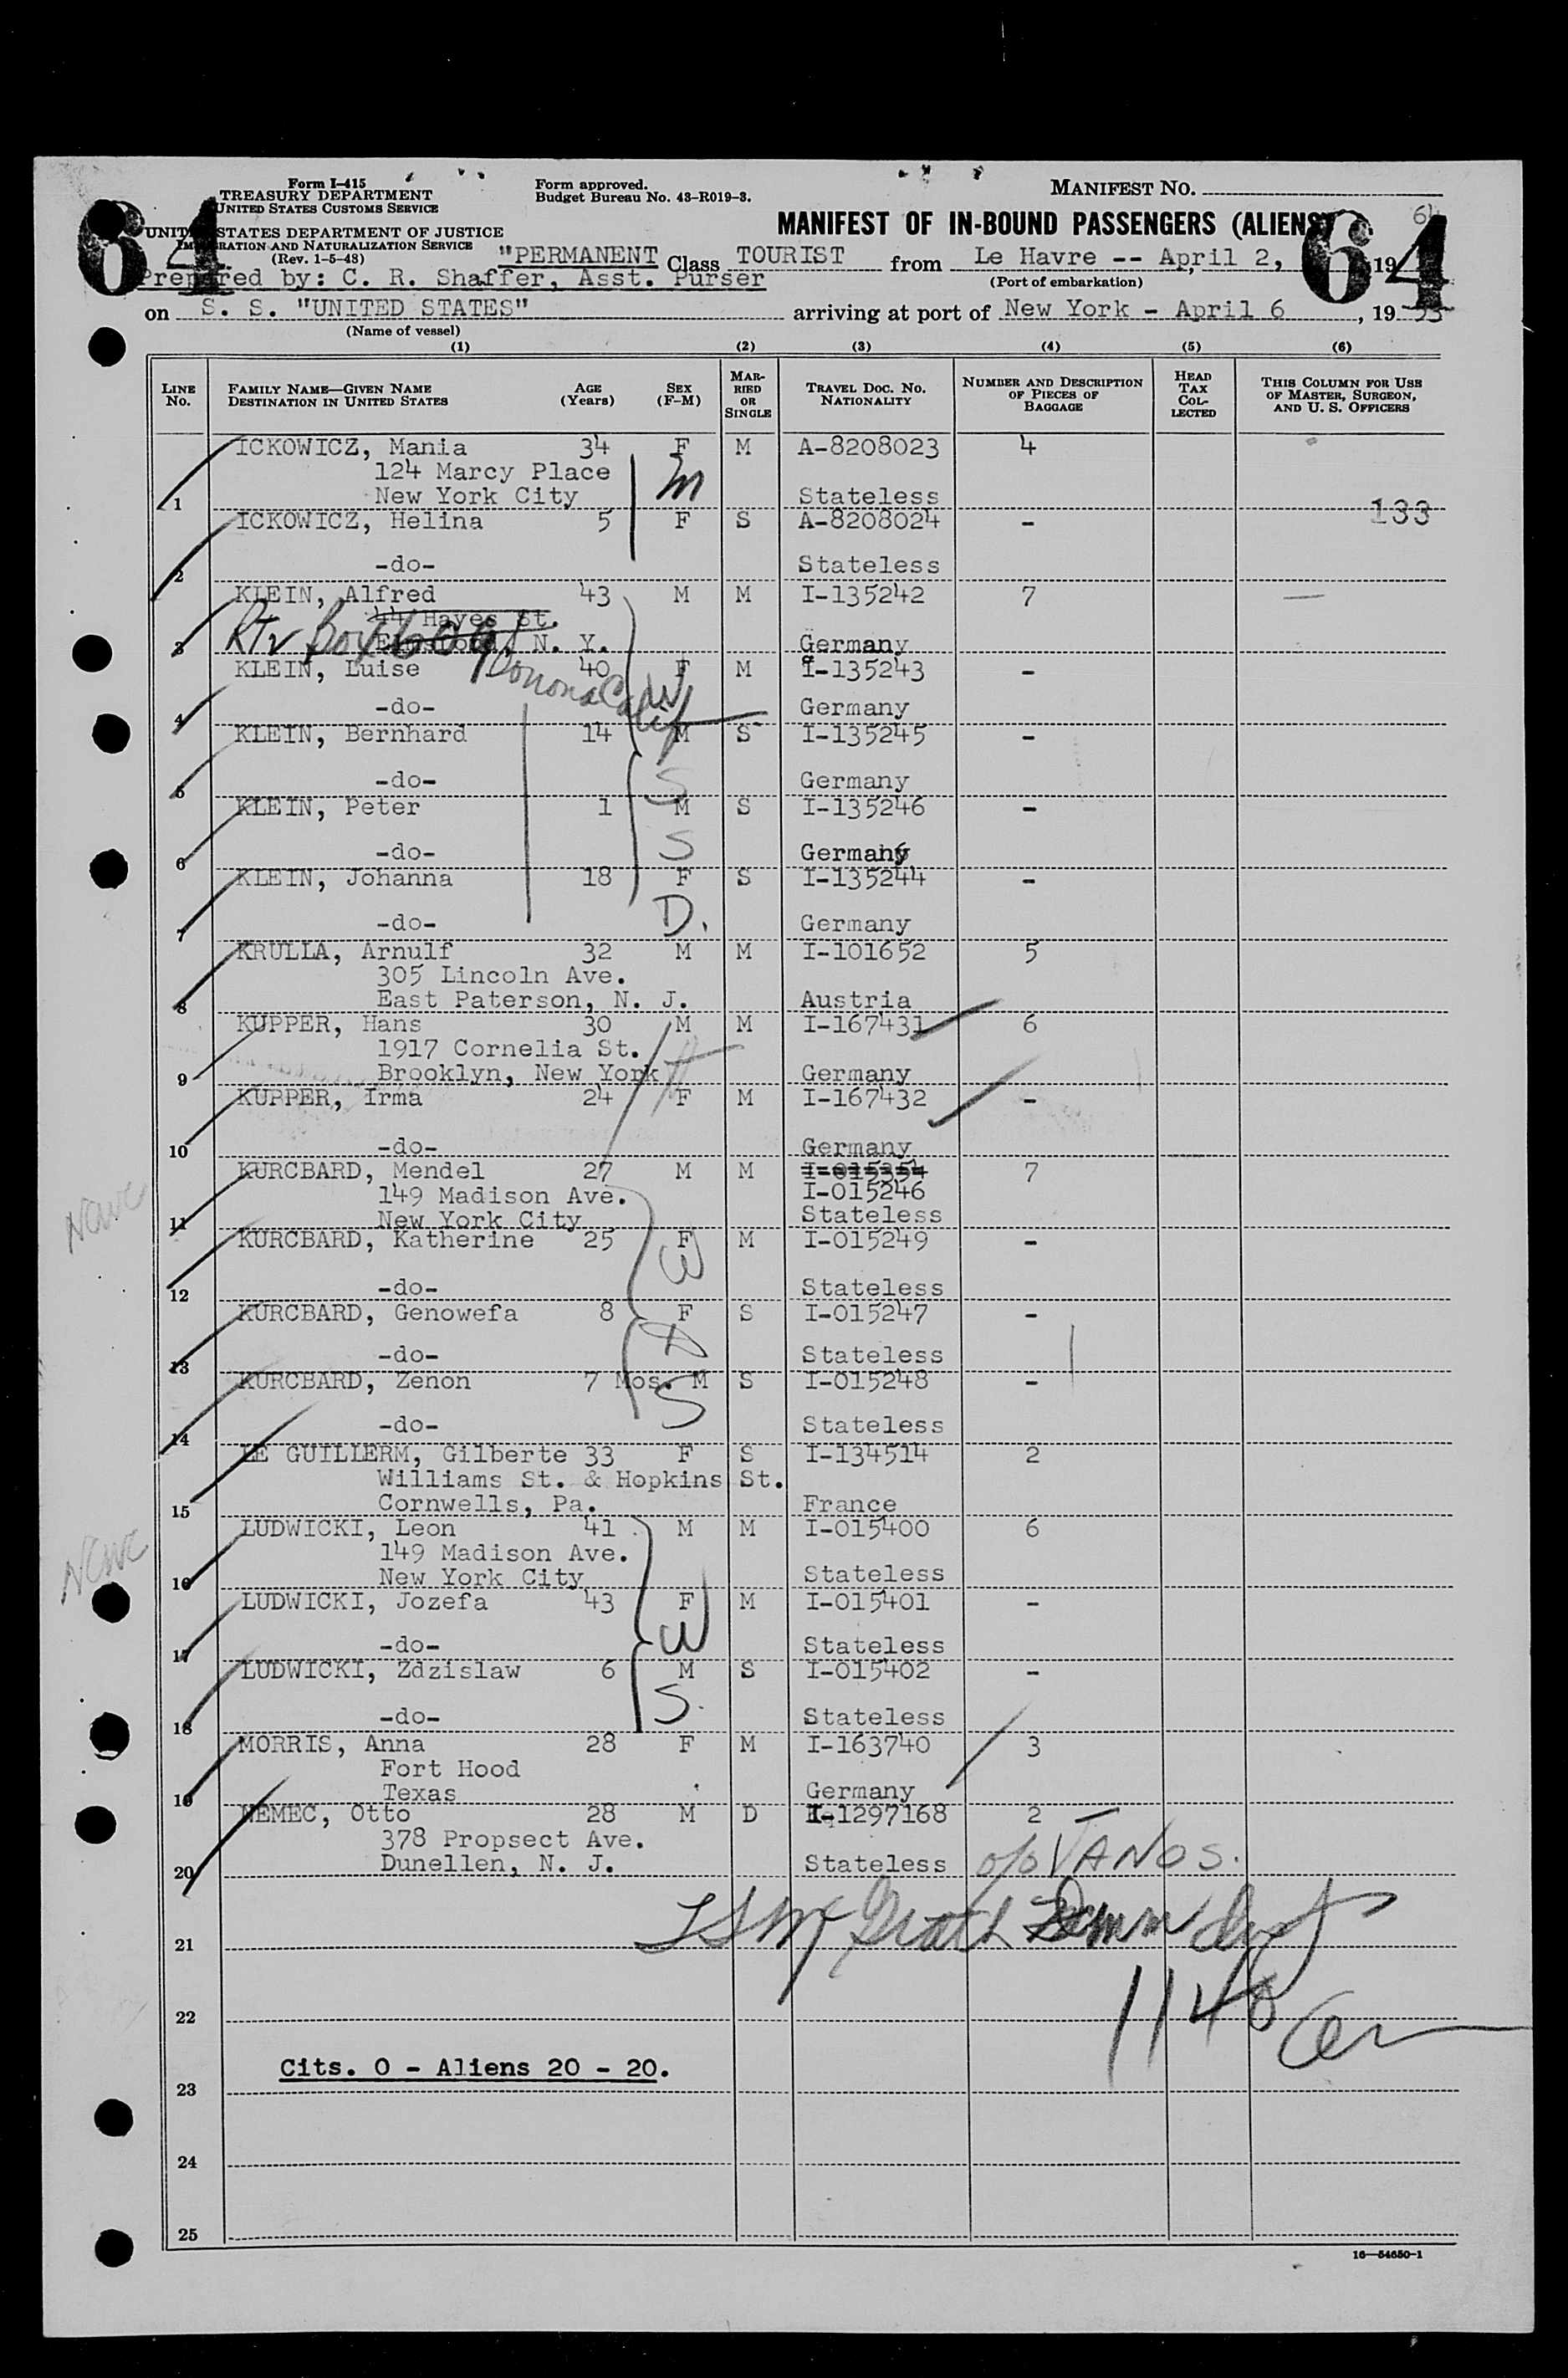 Form I-415
TREASURY DEPARTMENT
UNITED STATES CUSTOMS SERVICE
UNITED STATES DEPARTMENT OF JUSTICE
IMMIGRATION AND NATURALIZATION SERVICE
(Rev. 1-5-48)
Form approved.
Budget Bureau No. 43-R019-3.
MANIFEST NO.
64
64
64
MANIFEST OF IN-BOUND PASSENGERS (ALIENS)
"PERMANENT Class TOURIST from Le Havre -- April 2, 19
(Port of embarkation)
Prepared by: C. R. Shaffer, Asst. Purser
on S. S. "UNITED STATES" arriving at port of New York - April 6, 1953
(Name of vessel)
(1) (2) (3) (4) (5) (6)
LINE NO. FAMILY NAME—GIVEN NAME DESTINATION IN UNITED STATES AGE (Years) SEX (F-M) MARRIED OR SINGLE TRAVEL DOC. NO. NATIONALITY NUMBER AND DESCRIPTION OF PIECES OF BAGGAGE HEAD TAX COLLECTED THIS COLUMN FOR USE OF MASTER, SURGEON, AND U. S. OFFICERS
ICKOWICZ, Mania 34 F M A-8208023 4
124 Marcy Place
1 New York City Stateless
133
ICKOWICZ, Helina 5 F S A-8208024 -
2 -do- Stateless
KLEIN, Alfred 43 M M I-135242 7
44 Hayes St.
3 Elmsford, N. Y. Germany
Rtv Box 609
Pomona Calif
KLEIN, Luise 40 F M I-135243 -
4 -do- Germany
KLEIN, Bernhard 14 M S I-135245 -
S
5 -do- Germany
KLEIN, Peter 1 M S I-135246 -
S
6 -do- Germany
KLEIN, Johanna 18 F S I-135244 -
D.
7 -do- Germany
KRULLA, Arnulf 32 M M I-101652 5
305 Lincoln Ave.
8 East Paterson, N. J. Austria
KUPPER, Hans 30 M M I-167431 6
1917 Cornelia St.
9 Brooklyn, New York Germany
KUPPER, Irma 24 F M I-167432 -
10 -do- Germany
KURCBARD, Mendel 27 M M I-015354 7
149 Madison Ave. I-015246
11 New York City Stateless
NCWC
KURCBARD, Katherine 25 F M I-015249 -
12 -do- Stateless
KURCBARD, Genowefa 8 F S I-015247 -
D
13 -do- Stateless
KURCBARD, Zenon 7 Mos. M S I-015248 -
S
14 -do- Stateless
LE GUILLERM, Gilberte 33 F S I-134514 2
Williams St. & Hopkins St.
15 Cornwells, Pa. France
LUDWICKI, Leon 41 M M I-015400 6
149 Madison Ave.
16 New York City Stateless
NCWC
LUDWICKI, Jozefa 43 F M I-015401 -
17 -do- Stateless
LUDWICKI, Zdzislaw 6 M S I-015402 -
S.
18 -do- Stateless
MORRIS, Anna 28 F M I-163740 3
Fort Hood
19 Texas Germany
NEMEC, Otto 28 M D I-1297168 2
378 Propsect Ave.
20 Dunellen, N. J. Stateless
VANOS.
21
1140
22
Cits. 0 - Aliens 20 - 20.
23
24
25
16—54650-1